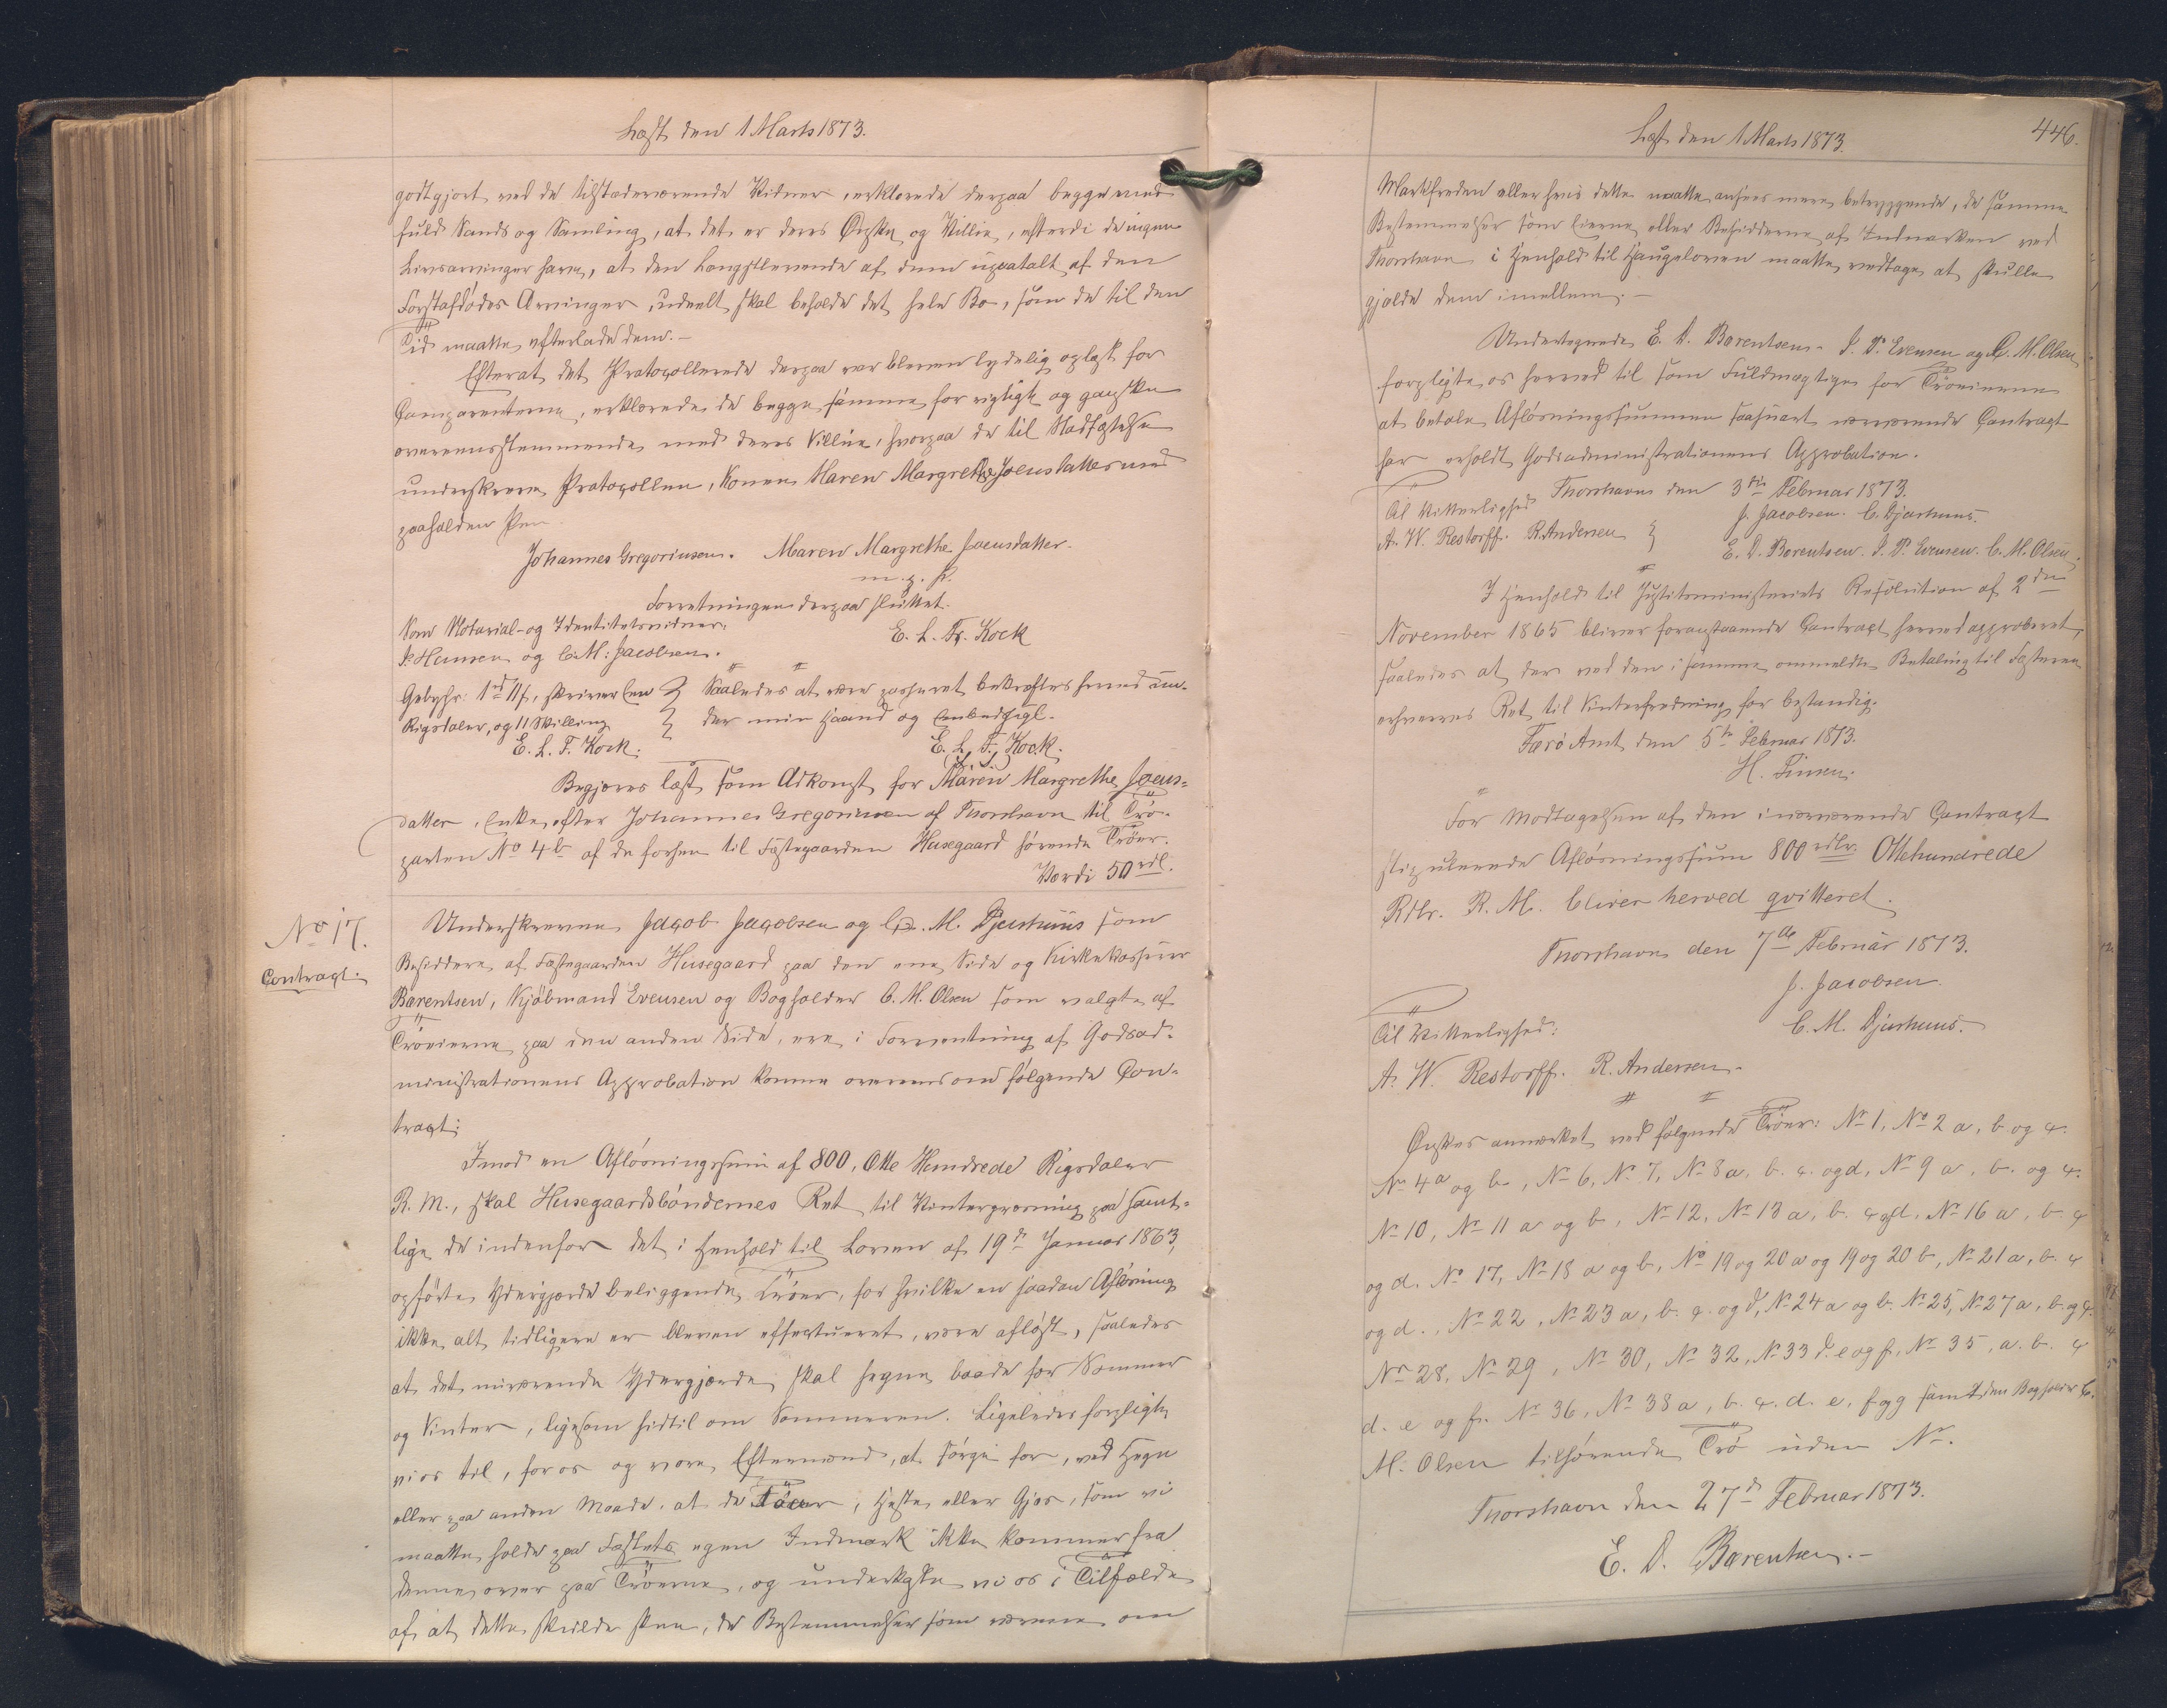 Læst den 1 Marts 1873.
godtgjort ved de tilstædeværende Vidner, erklærede derpaa begge med
fuld Sands og Samling, at det er deres Ønske og Villie, efterdi de ingen
Livsarvinger have, at den Længstlevende af dem upaatalt af den
Førstafdødes Arvinger, udeelt skal beholde det hele Bo, som de til den
Tid maatte efterlade dem.-
Efterat det Protocollerede derpaa var bleven lydelig oplæst for
Comparenterne, erklærede de begge samme for rigtigt og ganske
overeensstemmende med deres Villie, hvorpaa de til Stadfæstelse
underskreve Protocollen, Konen Maren Margrethe Joensdatter med
paaholden Pen
Johannes Gregoriusen. Maren Margrethe Joensdatter.
m. p. P.
Forretningen derpaa sluttet.
Som Notarial- og Identitetsvidner.
E. L. Fr. Kock
P. Hansen og C. M. Jacobsen.
Gebyhr: 1 rd 11 s, skriver Een
Rigsdaler, og 11 Skilling
E. L. F. Kock.
Saaledes at være passeret bekræftes herved un-
der min Haand og Embedssegl.
E. L. F. Kock.
(L. S.)
Begjæres læst som Adkomst for Maren Margrethe Joens-
datter, Enke efter Johannes Gregoriusen af Thorshavn til Trö-
parten No 4b af de forhen til Fæstegaarden Husegaard hørende Tröer.
Værdi 50 rdl.
No 17.
Contract.
Underskrevne Jacob Jacobsen og C. M. Djurhuus som
Besiddere af Fæstegaarden Husegaard paa den ene Side og Kirkekasserer
Bærentsen, Kjöbmand Evensen og Bogholder C. M. Olsen som valgte af
Tröeierne paa den anden Side, ere i Forventning af Godsad-
ministrationens Approbation komne overeens om følgende Con-
tract:
Imod en Aflösningssum af 800, Otte Hundrede Rigsdaler
R. M., skal Husegaardsböndernes Ret til Vintergræsning paa samt-
lige de indenfor det i Henhold til Loven af 19de Januar 1863,
opførte Ydergjærde beliggende Tröer, for hvilke en saadan Aflösning
ikke alt tidligere er bleven effectueret, være aflöst, saaledes
at det nuværende Ydergjærde skal hegne baade for Sommer
og Vinter, ligesom hidtil om Sommeren. Ligeledes forpligte
vi os til, for os og vore Eftermænd, at sörge for, ved Hegn
eller paa anden Maade, at de Faar, Heste eller Gjæs, som vi
maatte holde paa Fæstets egen Indmark ikke kommer fra
denne over paa Tröerne, og underkaste vi os i Tilfælde
af at dette skulde skee, de Bestemmelser som ere om
Læst den 1 Marts 1873.
446.
Markfreden eller hvis dette maatte ansees mere betryggende, de samme
Bestemmelser som Eierne eller Besidderne af Indmarken ved
Thorshavn i Henhold til Haugeloven maatte vedtage at skulle
gjælde dem imellem.-
Undertegnede E. D. Bærentsen, P. D. Evensen og C. M. Olsen
forpligte os herved til som Fuldmægtige for Tröeierne
at betale Aflösningssummen saasnart nærværende Contract
har erholdt Godsadministrationens Approbation.
Thorshavn den 3die Februar 1873.
Til Vitterlighed
J. Jacobsen. C. Djurhuus.
A. W. Restorff. R. Andersen
E. D. Bærentsen. P. D. Evensen. C. M. Olsen.
I Henhold til Justitsministeriets Resolution af 2den
November 1865 bliver foranstaaende Contract herved approberet,
saaledes at der ved den i samme ommeldte Betaling til Fæsterne
erhverves Ret til Vinterfredning for bestandig.
Færö Amt den 5te Februar 1873.
H. Finsen.
For Modtagelsen af den i nærværende Contract
stipulerede Aflösningssum 800 rdlr. Ottehundrede
Rdlr. R. M. bliver herved qvitteret.
Thorshavn den 7de Februar 1873.
J. Jacobsen.
C. M. Djurhuus.
Til Vitterlighed:
A. W. Restorff. R. Andersen.
Önskes anmærket ved følgende Tröer: No 1, No 2 a, b og c.
No 4a og b, No 6, No 7, No 8 a, b. c. og d, No 9 a, b. og c.
No 10, No 11 a og b, No 12, No 13 a, b. c og d, No 16 a, b. c
og d. No 17, No 18 a og b, No 19 og 20 a og 19 og 20 b, No 21 a, b. c
og d., No 22, No 23 a, b. c. og d, No 24 a og b. No 25, No 27 a, b. og c.
No 28, No 29, No 30, No 32, No 33 d. e og f, No 35, a. b. c
d. e og f. No 36, No 38 a, b. c. d. e. f og g samt den Bogholder C.
M. Olsen tilhørende Trö uden No.
Thorshavn den 27de Februar 1873.
E. D. Bærentsen.-